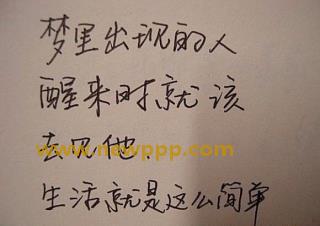 梦里出现的人
醒来时就该
去见他.
www.newppp.com
生活就是这么简单